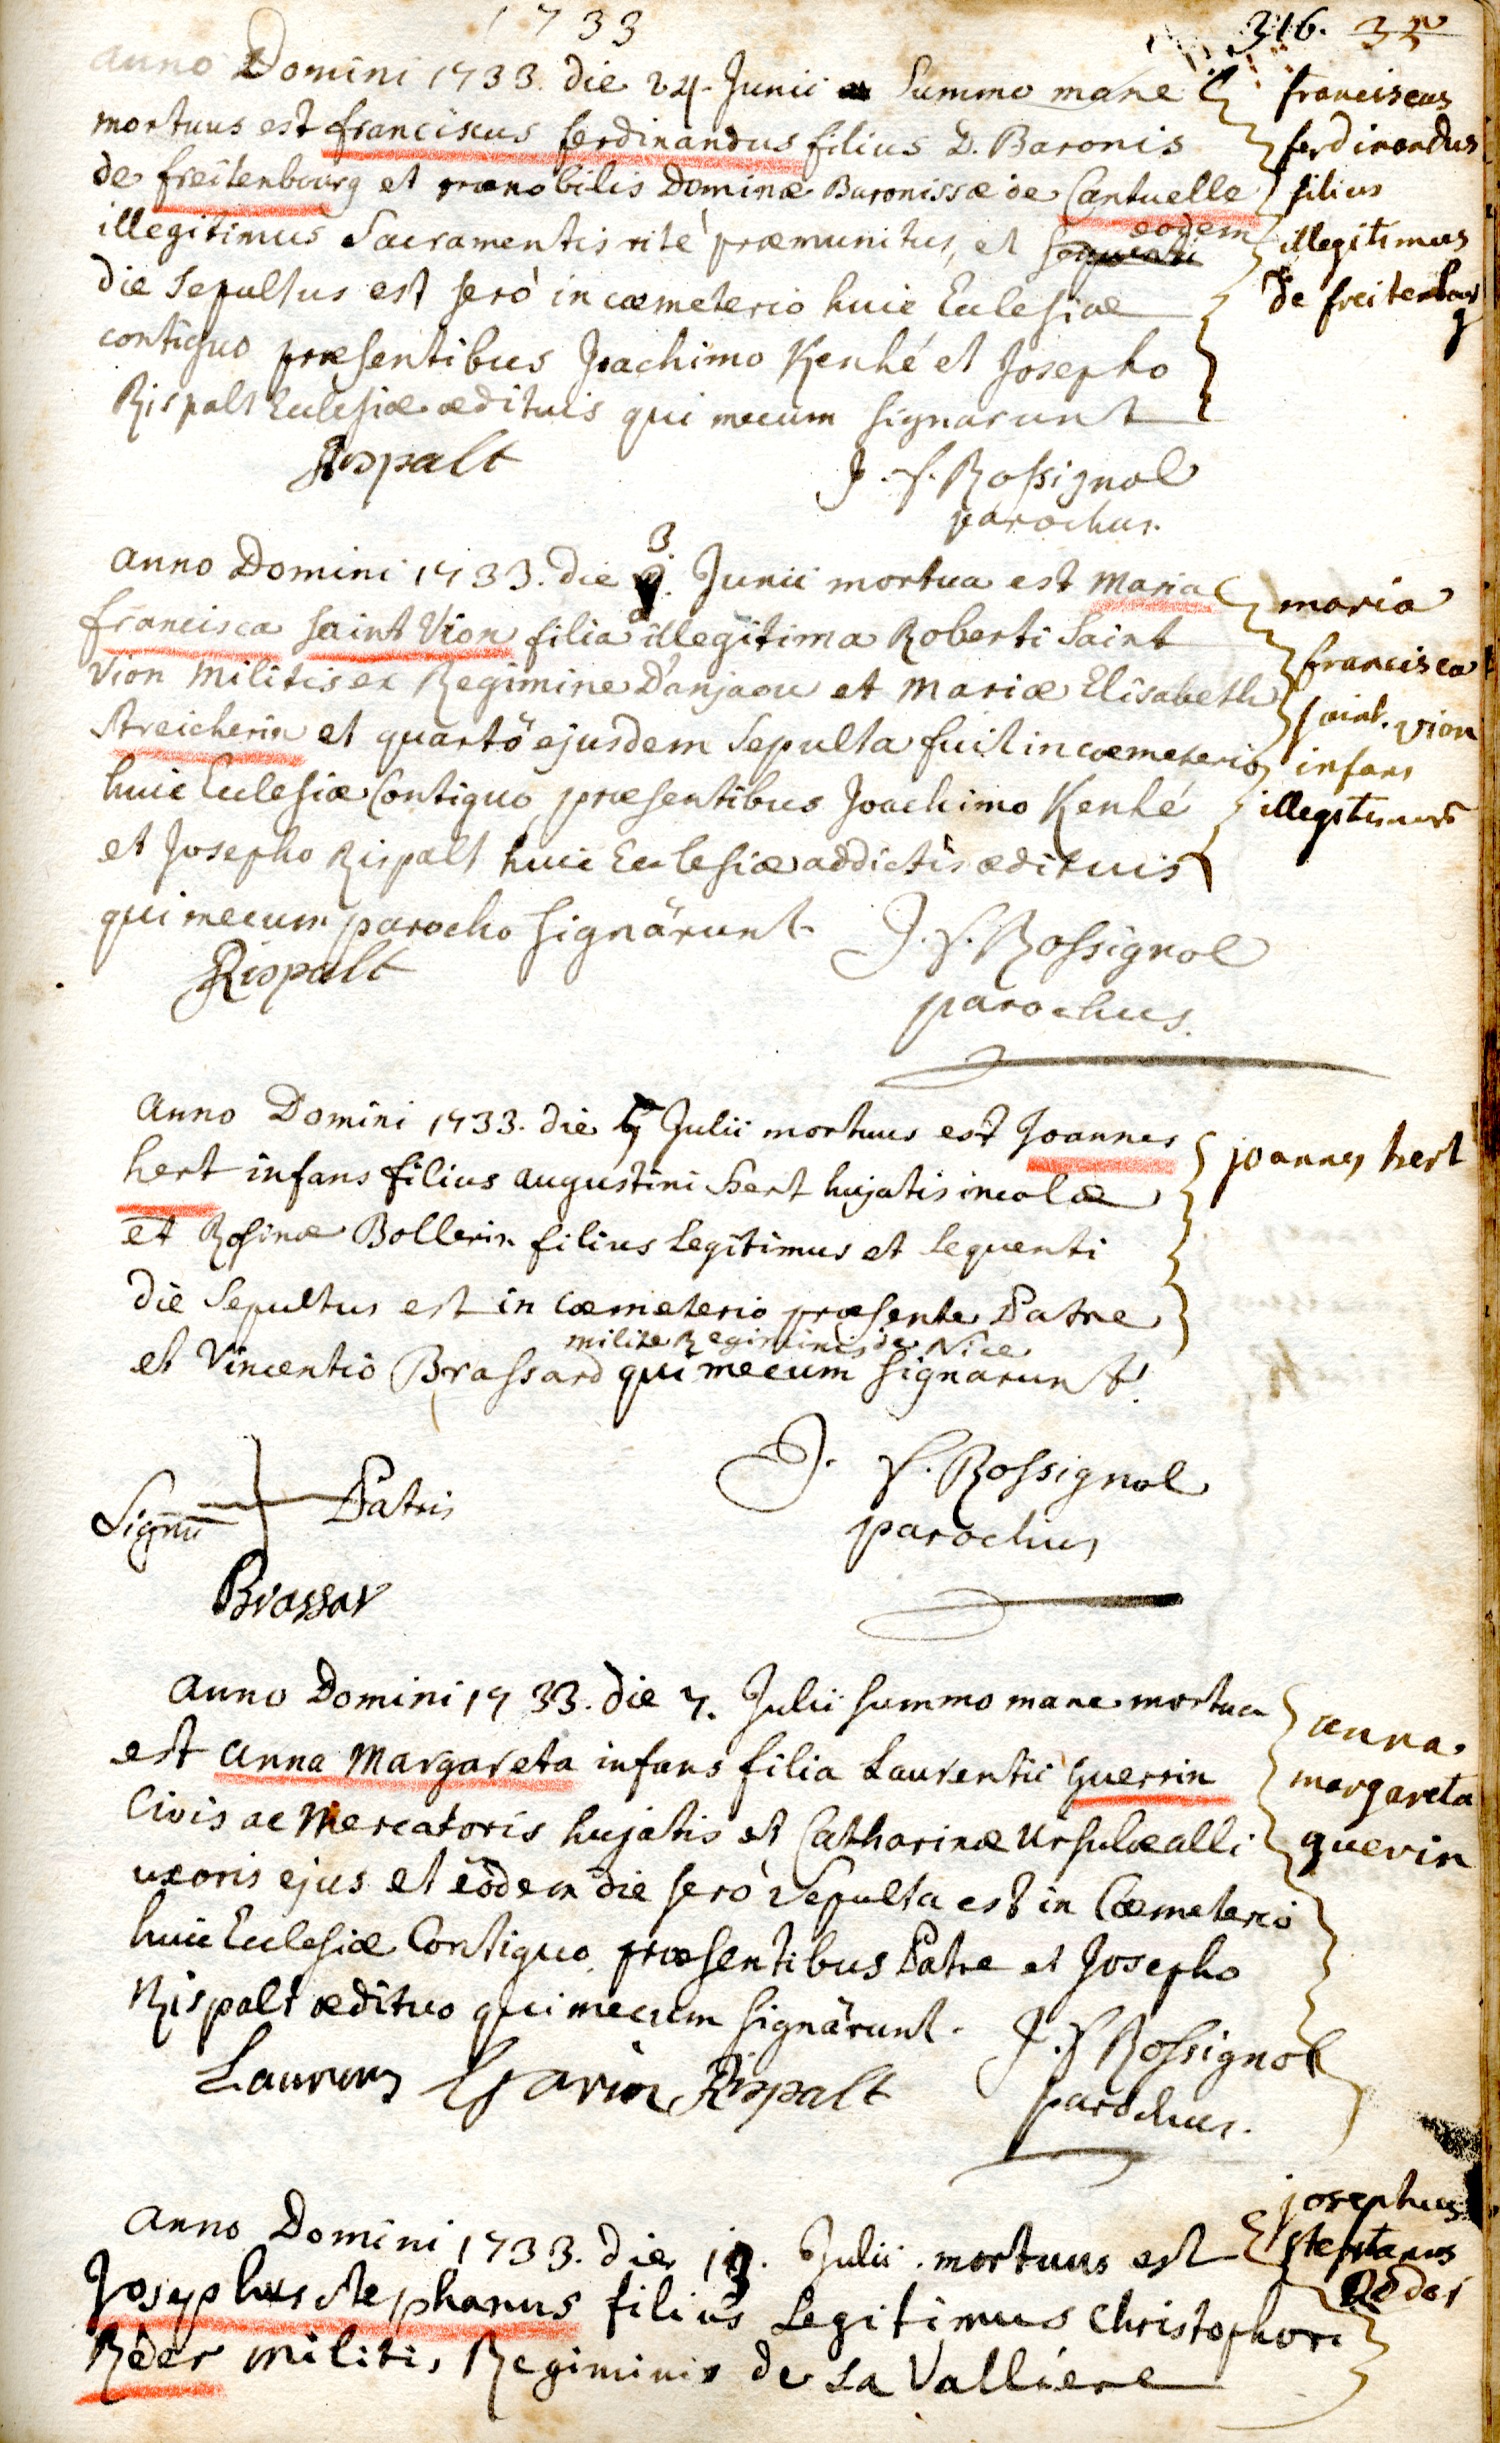 1733
316. 35
Anno Domini 1733. die 24. Junii Summo mane
mortuus est franciscus ferdinandus filius D. Baronis
de freitenbourg et prænobilis Dominæ Baronissæ de Cantuelle
illegitimus Sacramentis rité præmunitus, et sequenti eodem
die sepultus est seró in cæmeterio huic Ecclesiæ
contiguo præsentibus Joachimo Kenhé et Josepho
Rispalt Ecclesiæ ædituis qui mecum signarunt
franciscus
ferdinandus
filius
illegitimus
de freitenbourg
Rispalt
J. f. Rossignol
parochus.
Anno Domini 1733. die 3. Junii mortua est Maria
francisca saint Vion filia illegitima Roberti Saint
Vion Militis ex Regimine D'anjaou et Mariæ Elisabeth
Streicherin et quartö ejusdem Sepulta fuit in cæmeterio
huic Ecclesiæ Contiguo præsentibus Joachimo Kenhé
et Josepho Rispalt huic Ecclesiæ addictis ædituis
qui mecum parocho signärunt
maria
francisca
saint. vion
infans
illegitimus
Rispalt
J. f. Rossignol
parochus.
Anno Domini 1733. die Julii mortuus est Joannes
hert infans filius augustini hert hujatis incolæ
et Rosinæ Bollerin filius Legitimus et sequenti
die Sepultus est in Cæmeterio præsente Patre
milite Regiminis de Nice
et Vincentio Brassard qui mecum signarunt.
joannes hert
Signū Patris
J. f. Rossignol
parochus
Brassar
Anno Domini 1733. die 7. Julii summo mane mortua
est Anna Margareta infans filia Laurentii Guerrin
Civis ac Mercatoris hujatis et Catharinæ Ursulæ alli
uxoris ejus et eödem die seró Sepulta est in Cæmeterio
huic Ecclesiæ Contiguo præsentibus Patre et Josepho
Rispalt ædituo qui mecum signärunt.
anna.
margareta
guerin
Laurens Garin Rispalt
J. f Rossignol
parochus.
Anno Domini 1733. die 13. Julii mortuus est
Josephus Stephanus filius Legitimus Christophori
Reder militis Regiminis de La Valliere
josephus
stephanus
Reder